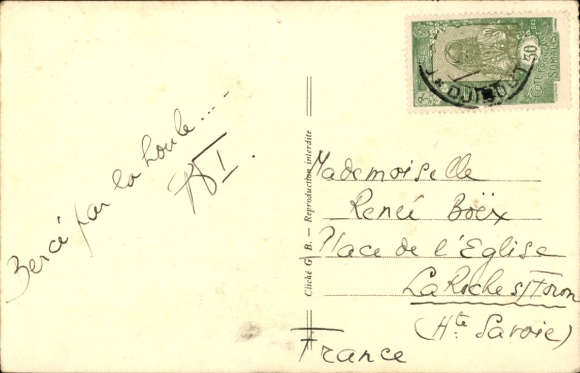 Bercé par la houle....
Cliché G. B. – Reproduction interdite
30
CÔTE FRANÇAISE DES SOMALIS
DJIBOUTI
Mademoiselle
Reneé Boëx
Place de l'Eglise
La Roche s/Foron
(Hte Savoie)
France